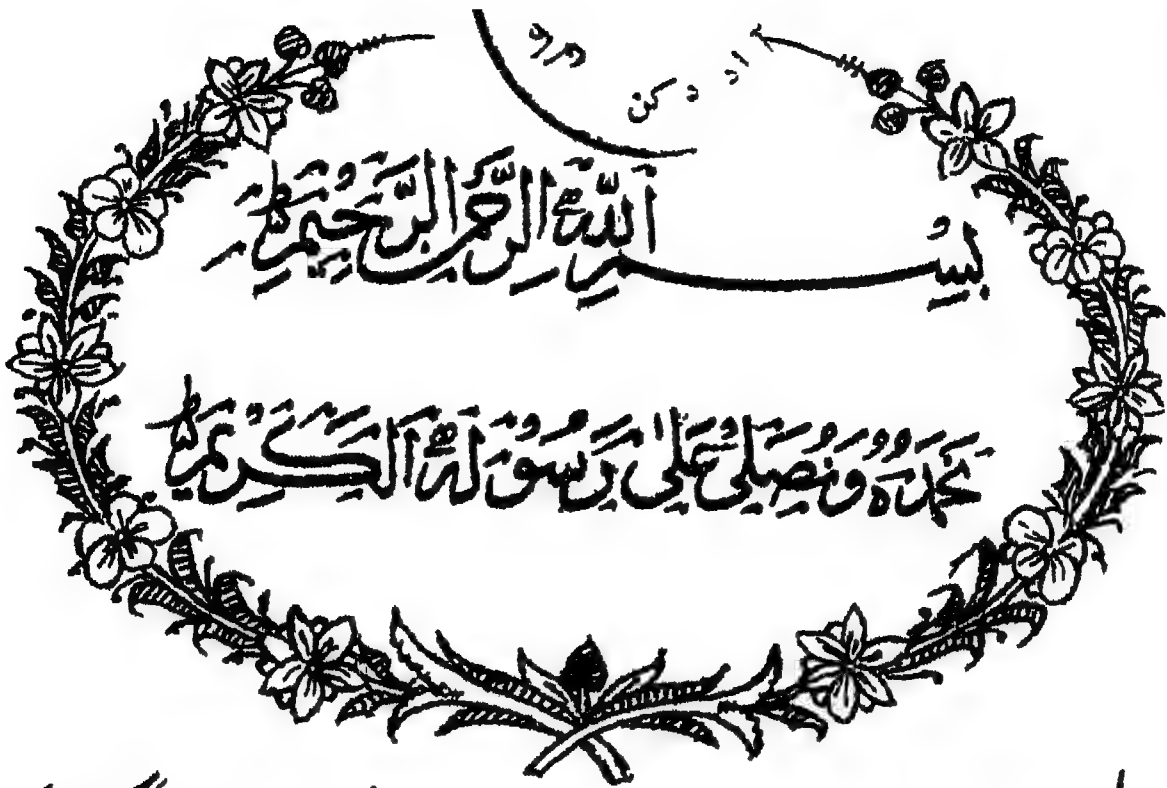 دکن
بِسْمِ اللّٰهِ الرَّحْمٰنِ الرَّحِيْمِ
نَحْمَدُهٗ وَنُصَلِّیْ عَلٰی رَسُوْلِهِ الْكَرِيْمِ